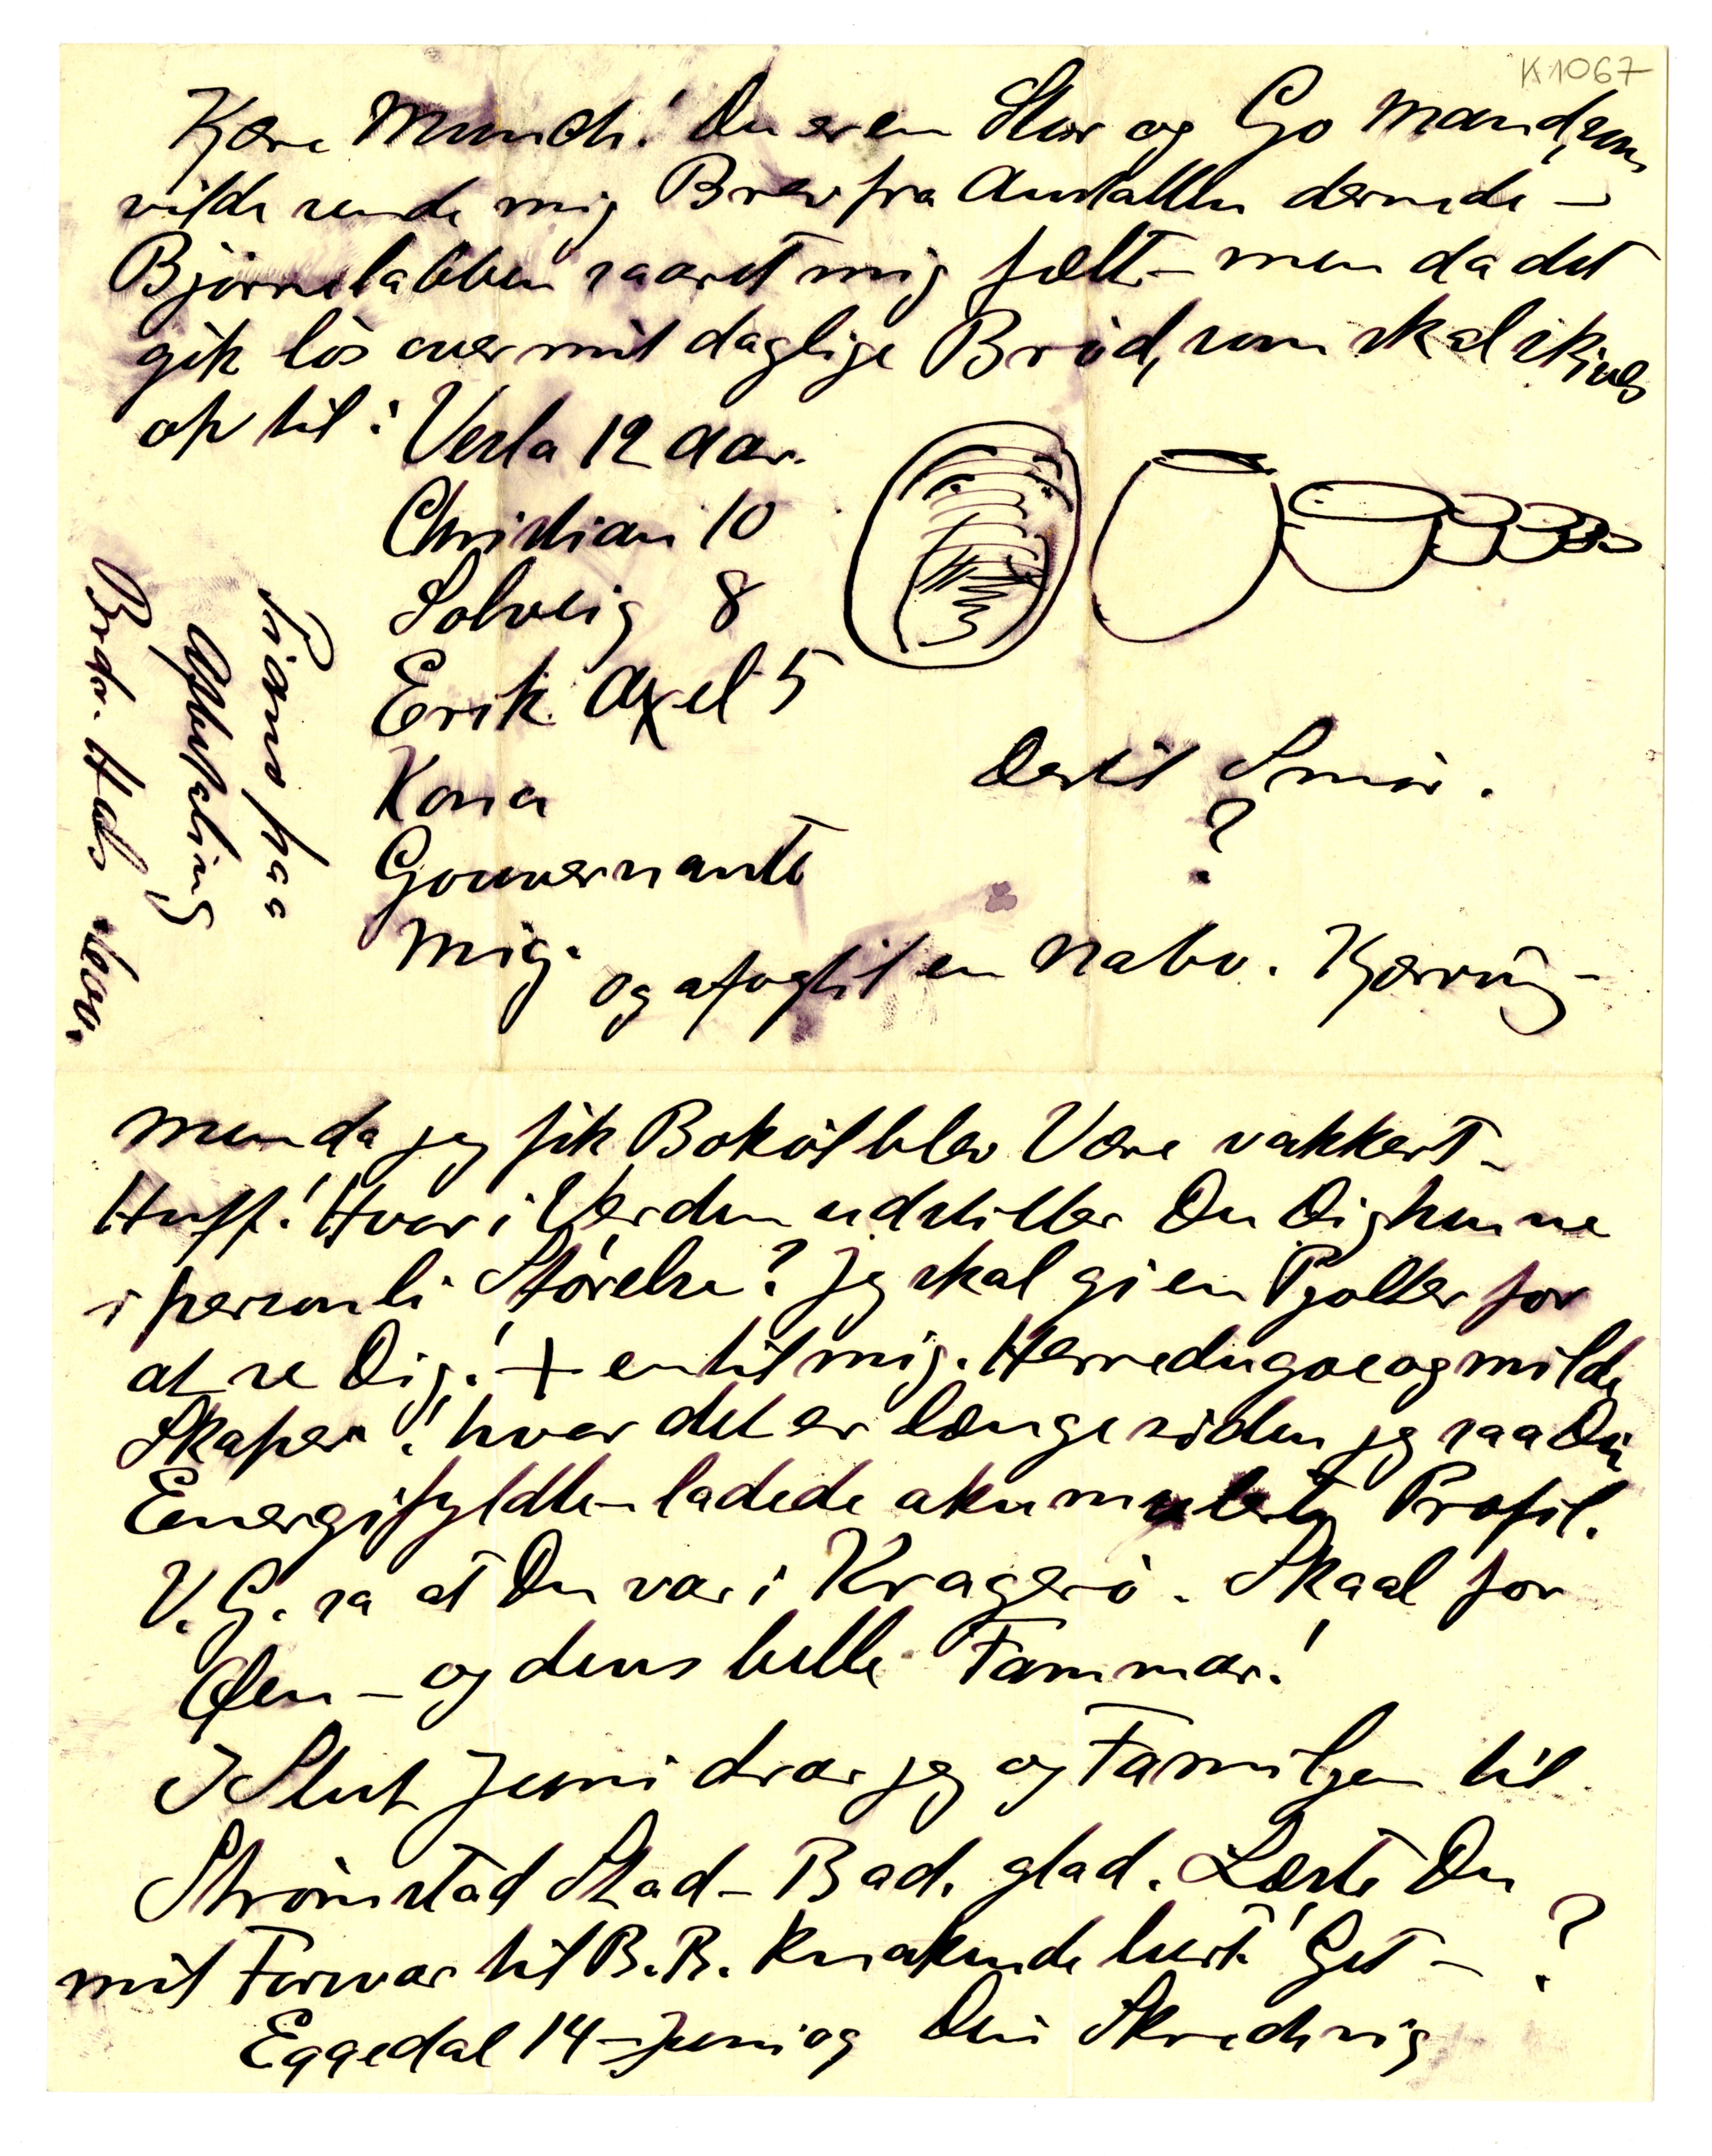 K 1067
Kære Munch! Du er en Stor og Go Mand, som
vilde sende mig Brev fra Anstalten dernede –
Björnelabben saaret mig fælt – men da det
gik lös over mit daglige Bröd, som skal skives
op til: Vesla 12 Aar.
Christian 10
Solveig 8
Erik Axel 5
Kona
Gouvernante
Mig.
og afogtil en Nabo. Kjærring –
Dertil Smör.
?
Piano paa
Afbetaling
Brdr. Hals
men da jeg fik Boköl blev Være vakkert –
Huff! Hvor i Verden udstiller Du Dig henne
i personli Störelse? Jeg skal gi en Pjolter for
at se Dig! + en til mig. Herredugoe og milde
Skaper! hvor det er længe siden jeg saa Din
Energifyldte – ladede akumulerte Profil.
V.G. sa at Du var i Kragerö. Skaal for
Øen – og dens bitte Fammar!
I Slut Juni drar jeg og Familjen til
Strömstad Stad – Bad. glad. Læste Du
mit Forsvar til B.B. Knakende lurt! Get – ?
Eggedal 14 – Juni 09 Din Skredsvig